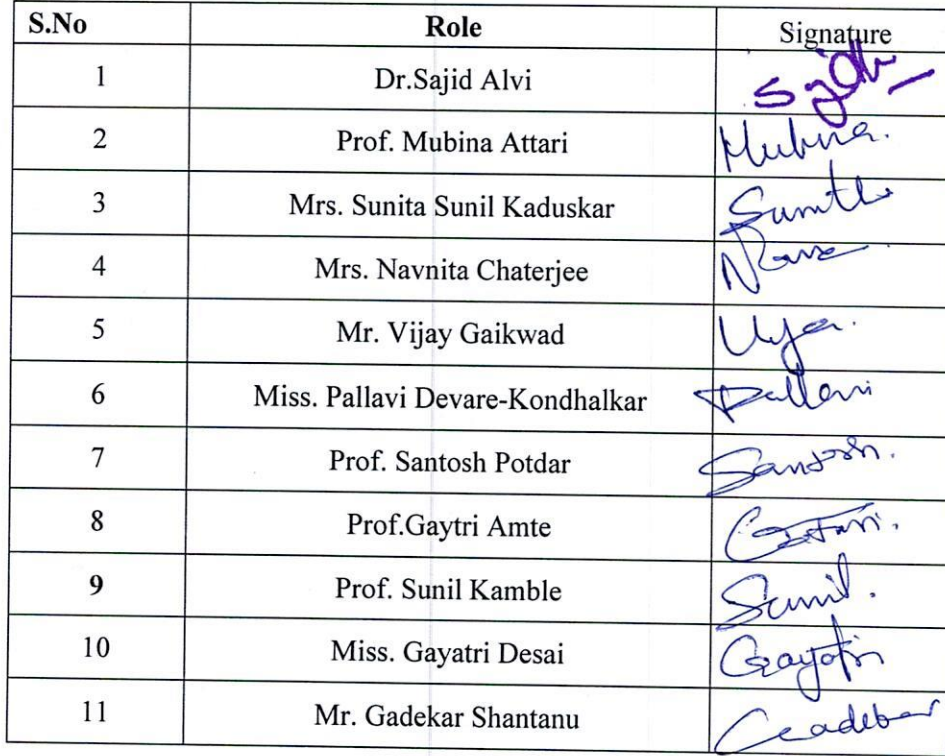 S.No Role Signature
1 Dr.Sajid Alvi Sajid
2 Prof. Mubina Attari Mubina.
3 Mrs. Sunita Sunil Kaduskar
4 Mrs. Navnita Chaterjee
5 Mr. Vijay Gaikwad
6 Miss. Pallavi Devare-Kondhalkar Pallavi
7 Prof. Santosh Potdar Santosh.
8 Prof.Gaytri Amte
9 Prof. Sunil Kamble Sunil.
10 Miss. Gayatri Desai Gayatri
11 Mr. Gadekar Shantanu Gadekar